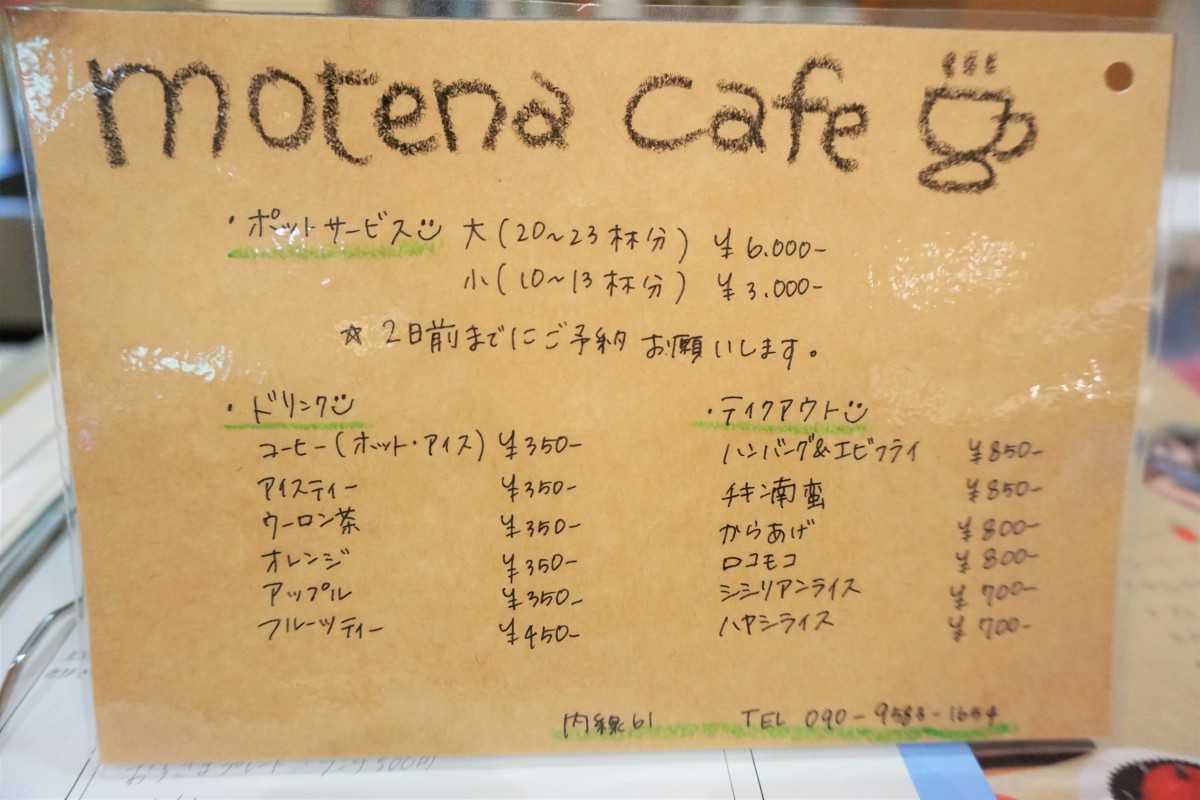 motena cafe
・ポットサービス 大(20〜23杯分) ¥6.000-
小(10〜13杯分) ¥3.000-
☆2日前までにご予約お願いします。
・ドリンク
コーヒー(ホット・アイス) ¥350-
アイスティー ¥350-
ウーロン茶 ¥350-
オレンジ ¥350-
アップル ¥350-
フルーツティー ¥450-
・テイクアウト
ハンバーグ&エビフライ ¥850-
チキン南蛮 ¥850-
からあげ ¥800-
ロコモコ ¥800-
シシリアンライス ¥700-
ハヤシライス ¥700-
内線61 TEL 090-9583-1654